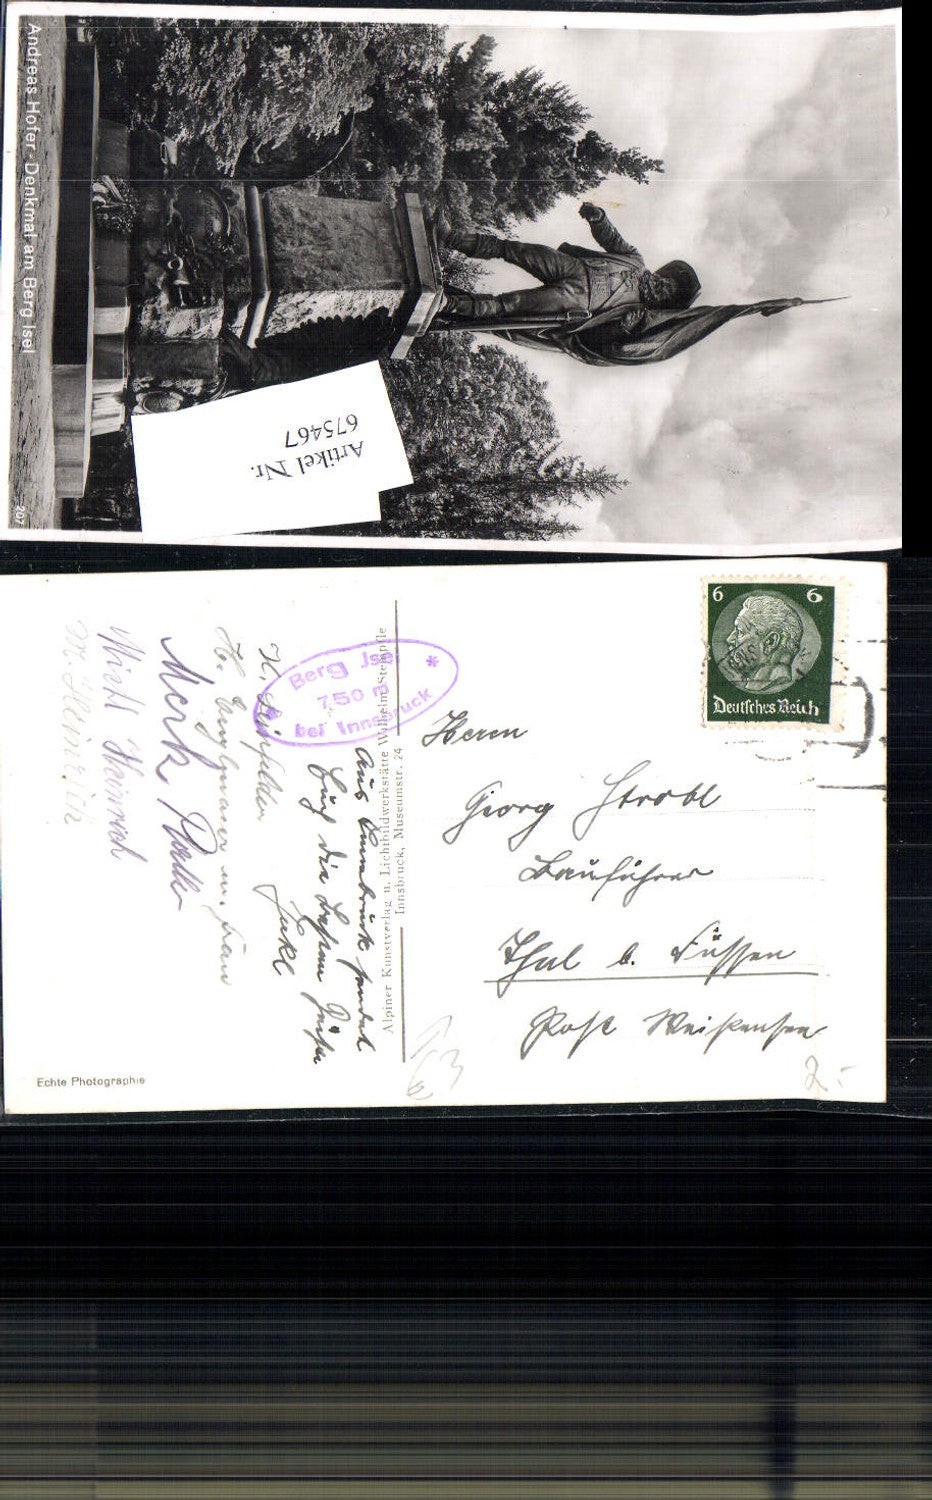 Andreas Hofer-Denkmal am Berg Isel
207
Artikel Nr.
675467
6 6
Deutsches Reich
Berg Jsel
750 m
bei Innsbruck
Alpiner Kunstverlag u. Lichtbildwerkstätte Wilhelm Stempfle
Innsbruck, Museumstr. 24
Herrn
Georg Strobl
Bauführer
Thal b. Füssen
Post Weißensee
Aus Innsbruck sendet
die besten Grüße
Merk
M. Heinrich
Echte Photographie
2.-